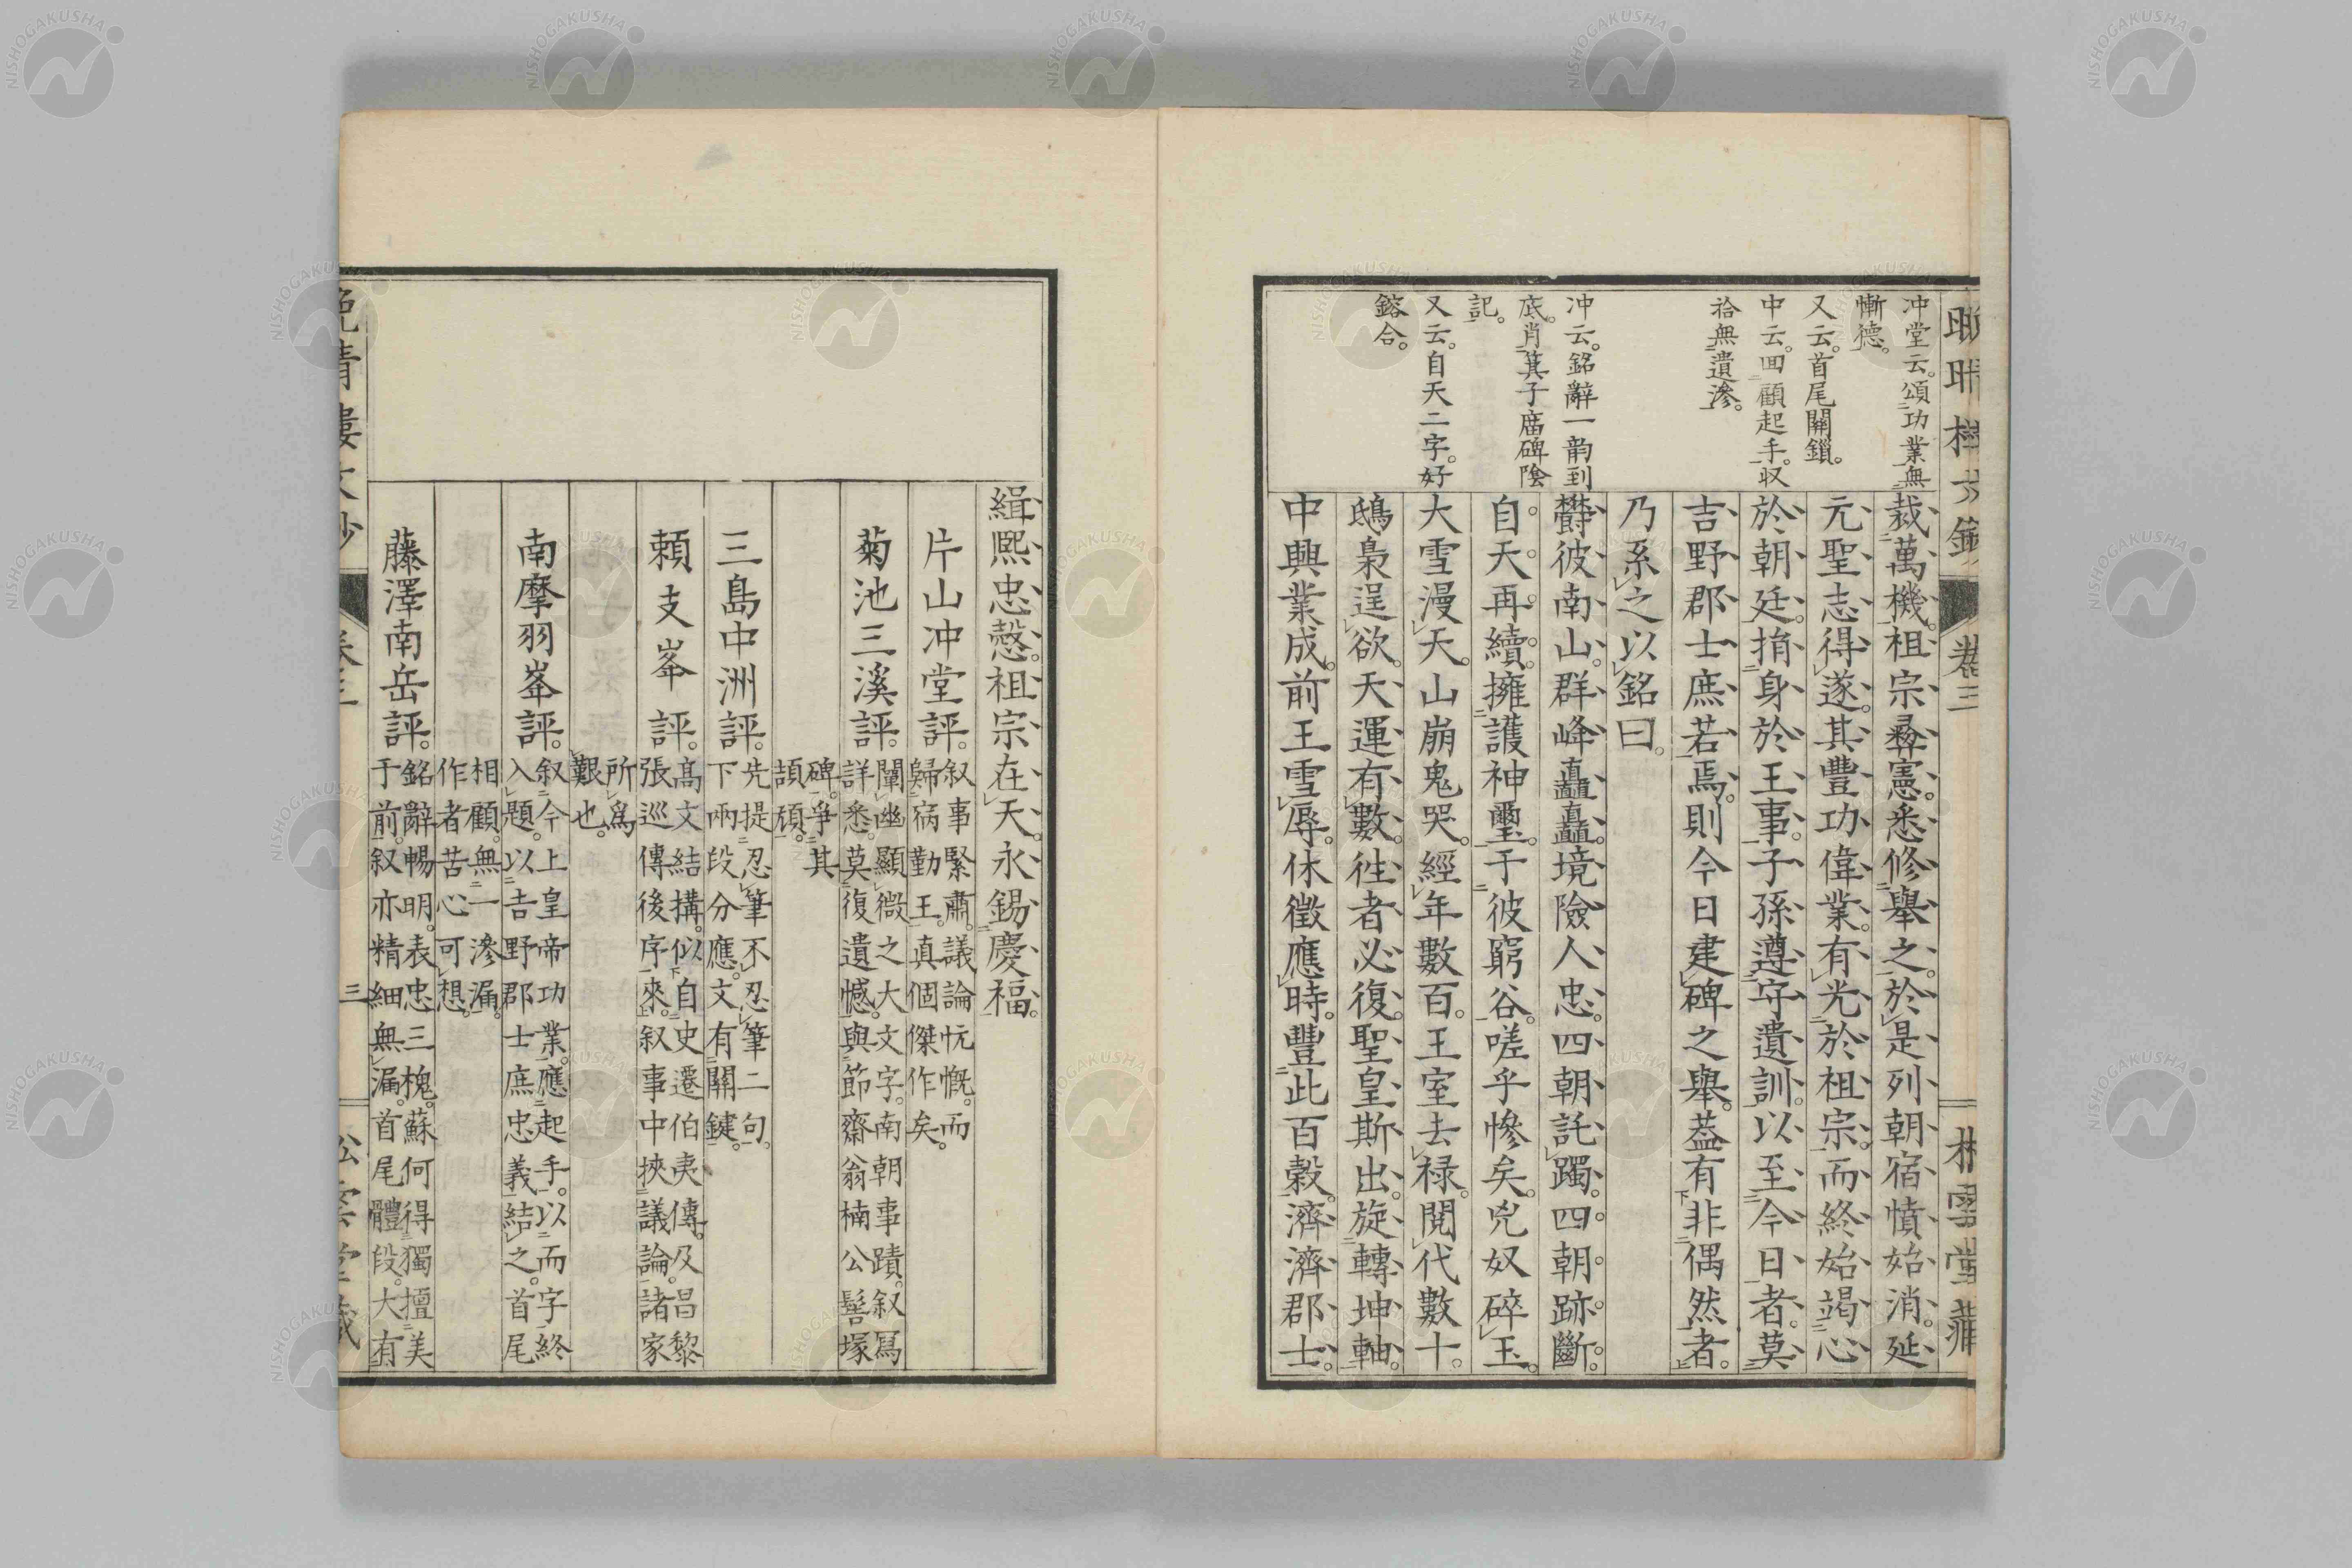 冲堂云。頌功業無
慚德。
又云。首尾關鎖。
中云。回顧起手。収
拾無遺滲。
冲云。銘辭一韵到
底。肖箕子庿碑陰
記。
又云。自天二字。好
鎔合。
裁萬機。祖宗彜憲。悉修舉之。於是列朝宿憤始消。延
元聖志得遂。其豐功偉業。有光於祖宗。而終始竭心
於朝廷。捐身於王事。子孫遵守遺訓。以至今日者。莫
吉野郡士庶若焉。則今日建碑之舉。葢有非偶然者。
乃系之以銘曰。
欝彼南山。群峰矗矗。境險人忠。四朝託躅。四朝跡斷。
自天再續。擁護神璽。于彼窮谷。嗟乎慘矣。兇奴碎玉。
大雪漫天。山崩鬼哭。經年數百。王室去禄。閱代數十。
鴟梟逞欲。天運有數。徃者必復。聖皇斯出。旋轉坤軸。
中興業成。前王雪辱。休徵應時。豐此百穀。濟濟郡士。
卷三
緝熙忠慤。祖宗在天。永錫慶福。
片山冲堂評。叙事緊肅。議論忼慨。而
歸宿勤王。真個傑作矣。
菊池三溪評。闡幽顯微之大文字。南朝事蹟。叙寫
詳悉。莫復遺憾。與節齋翁楠公髻塚
碑。爭其
頡頏。
三島中洲評。先提忍筆不忍筆二句。
下兩段分應。文有關鍵。
賴支峯評。高文結構。似自史遷伯夷傳。及昌黎
張巡傳後序來。叙事中挾議論。諸家
所爲
艱也。
南摩羽峯評。叙今上皇帝功業。應起手。以而字終
入題。以吉野郡士庶忠義結之。首尾
相顧。無一滲漏。
作者苦心可想。
藤澤南岳評。銘辭暢明。表忠三槐。蘇何得獨擅美
于前。叙亦精細無漏。首尾體段。大有
三